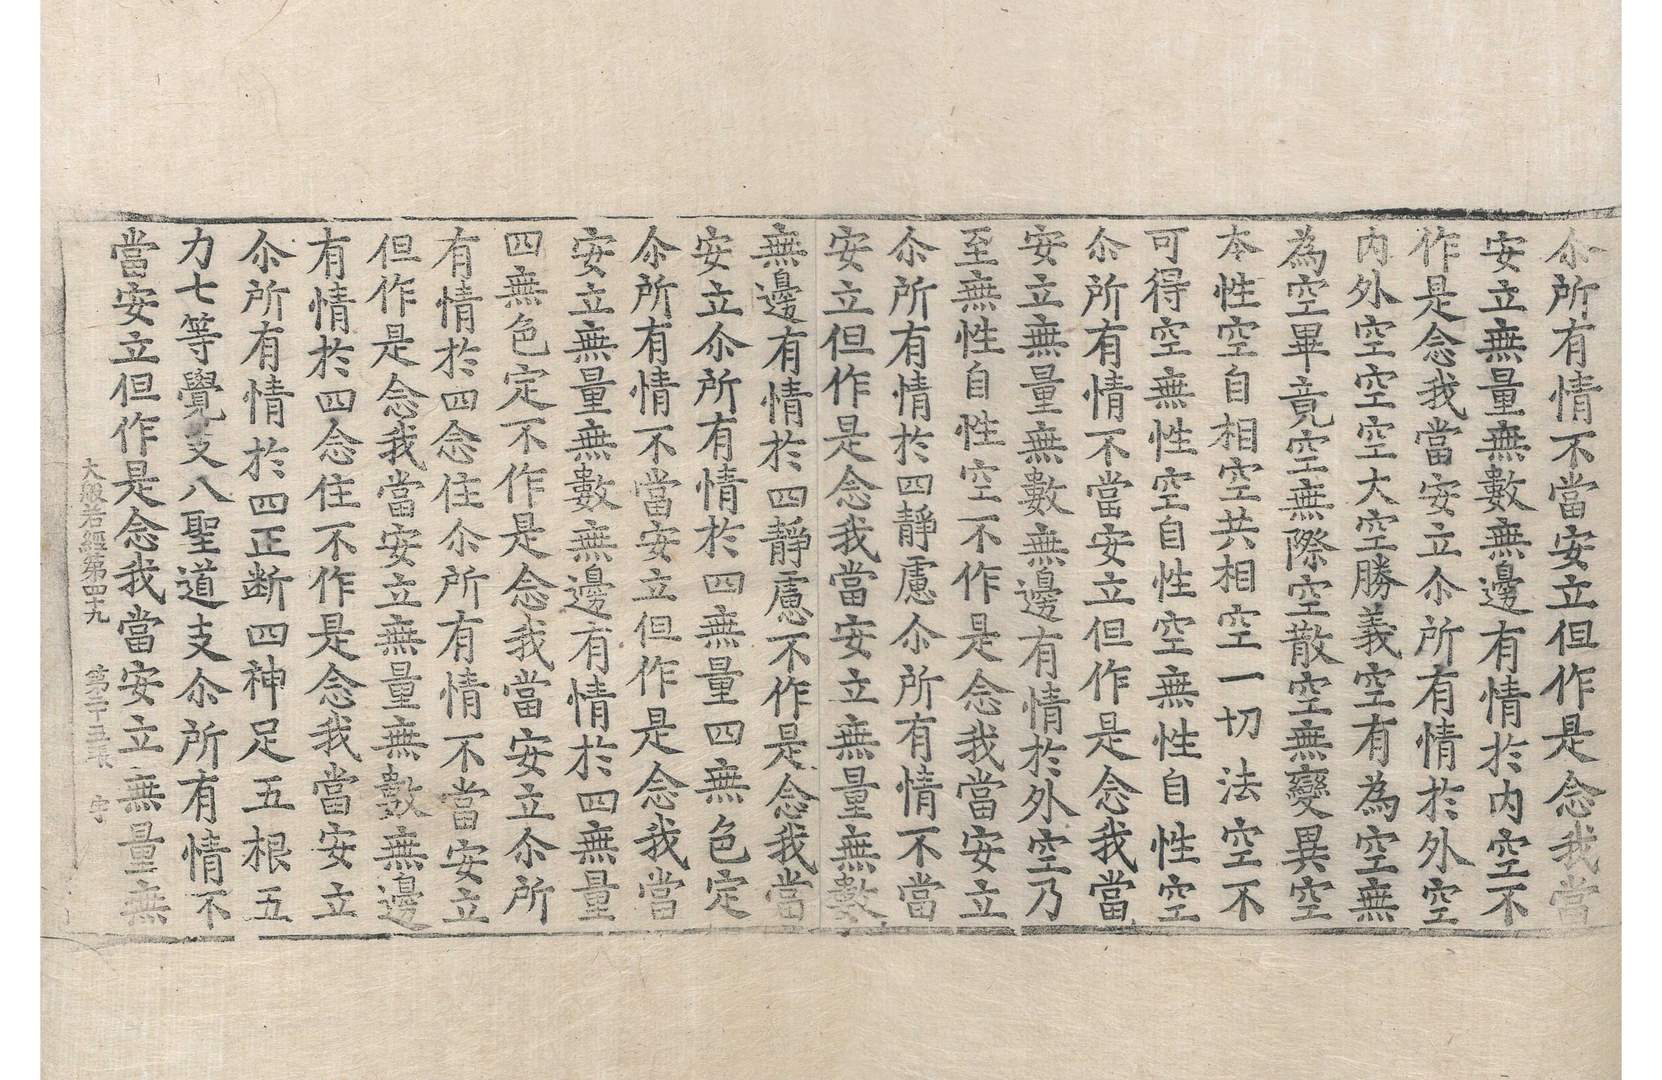 尒所有情不當安立但作是念我當
安立無量無數無邊有情於內空不
作是念我當安立尒所有情於外空
內外空空空大空勝義空有為空無
為空畢竟空無際空散空無變異空
本性空自相空共相空一切法空不
可得空無性空自性空無性自性空
尒所有情不當安立但作是念我當
安立無量無數無邊有情於外空乃
至無性自性空不作是念我當安立
尒所有情於四靜慮尒所有情不當
安立但作是念我當安立無量無數
無邊有情於四靜慮不作是念我當
安立尒所有情於四無量四無色定
尒所有情不當安立但作是念我當
安立無量無數無邊有情於四無量
四無色定不作是念我當安立尒所
有情於四念住尒所有情不當安立
但作是念我當安立無量無數無邊
有情於四念住不作是念我當安立
尒所有情於四正断四神足五根五
力七等覺支八聖道支尒所有情不
當安立但作是念我當安立無量無
大般若經第四十九 第二十五張 宇